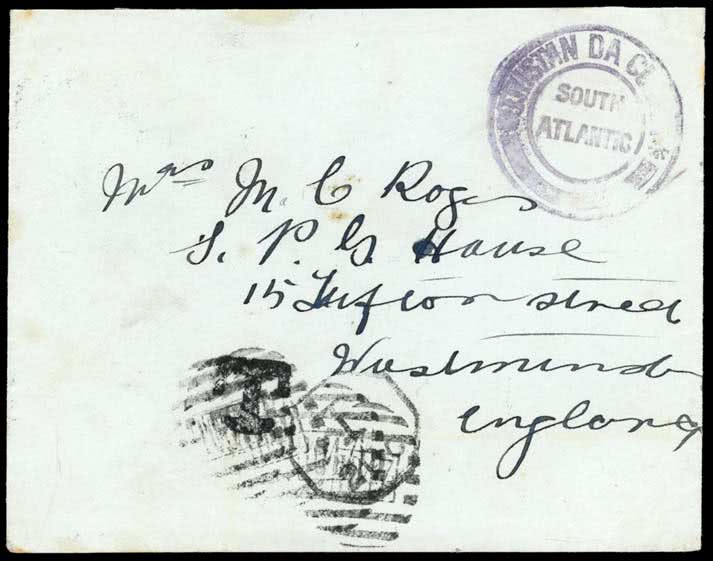 TRISTAN DA CU
SOUTH
ATLANTIC
Mrs M. C Rogers
S. P. G. House
15 Tufton street
Westminster
England